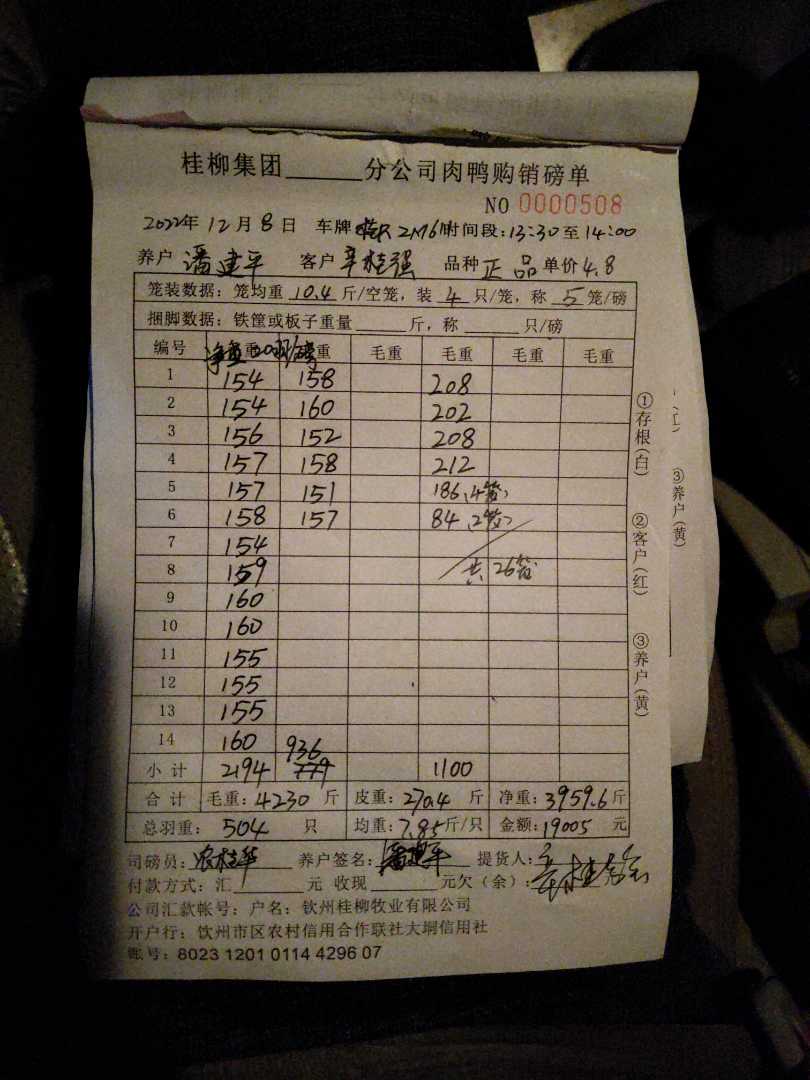 桂柳集团______分公司肉鸭购销磅单
NO 0000508
2022年12月8日 车牌 2M61时间段:13:30至14:00
养户 潘建平 客户 辛桂强 品种 正品 单价4.8
笼装数据：笼均重 10.4 斤/空笼，装 4 只/笼，称 5 笼/磅
捆脚数据：铁筐或板子重量______斤，称______只/磅
编号 净重 20只/磅 毛重 毛重 毛重 毛重
1 154 158 208
2 154 160 202
3 156 152 208
4 157 158 212
5 157 151 186(4笼)
6 158 157 84(2笼)
7 154
8 159 共26笼
9 160
10 160
11 155
12 155
13 155
14 160 936
小计 2194 779 1100
合计 毛重:4230斤 皮重:270.4斤 净重:3959.6斤
总羽重: 504 只 均重:7.85斤/只 金额:19005元
司磅员:农桂华 养户签名:潘建平 提货人:辛桂强
付款方式：汇______元 收现______元欠（余）:
公司汇款帐号：户名：钦州桂柳牧业有限公司
开户行：钦州市区农村信用合作联社大垌信用社
账号：8023 1201 0114 4296 07
①存根(白)
②客户(红)
③养户(黄)
③养户(黄)